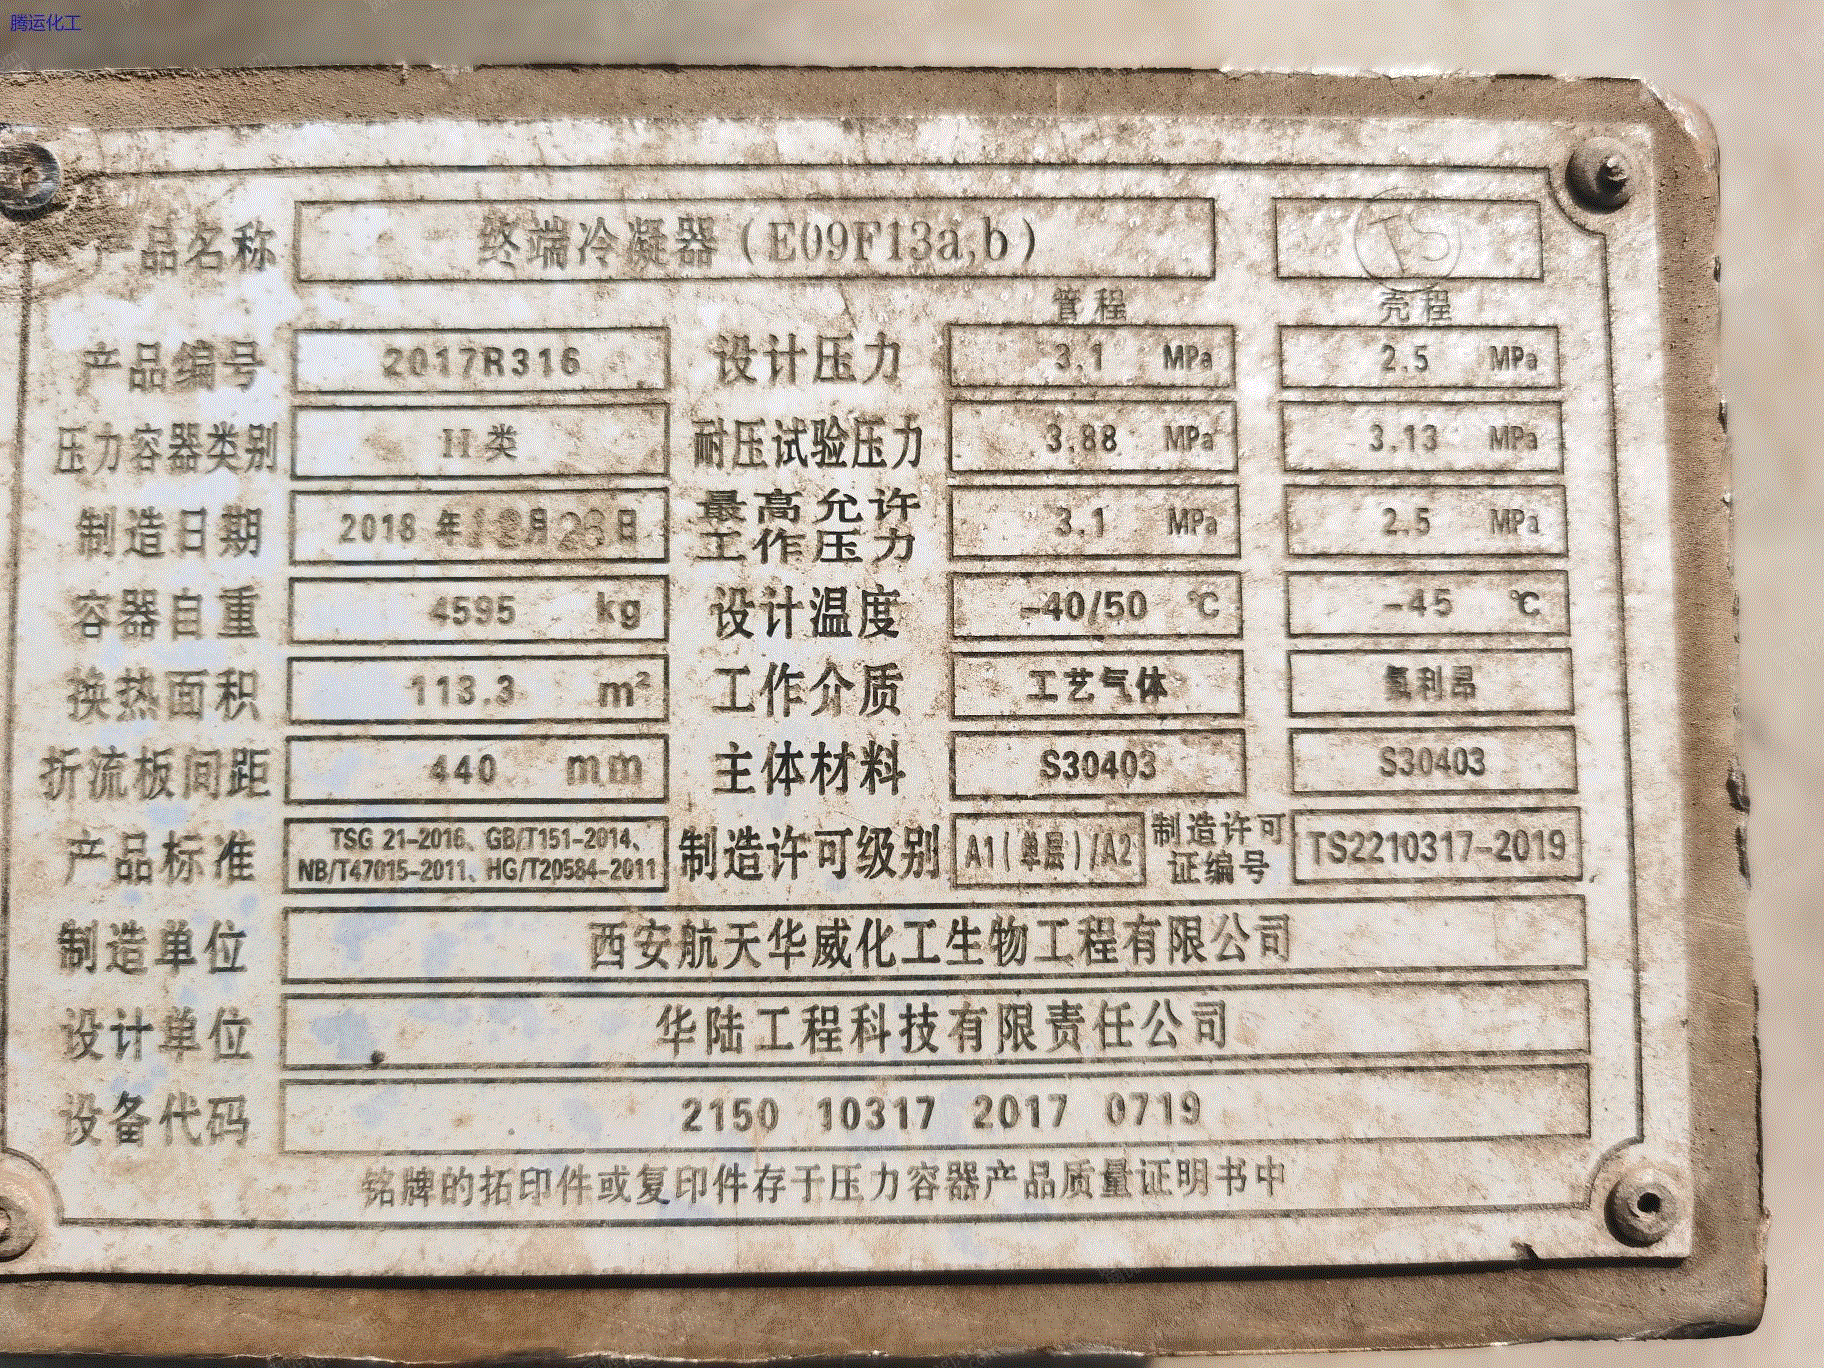 腾运化工
品名称 终端冷凝器(E09F13a,b) TS
管程 壳程
产品编号 2017R316 设计压力 3.1 MPa 2.5 MPa
压力容器类别 II类 耐压试验压力 3.88 MPa 3.13 MPa
制造日期 2018 年12月23日 最高允许工作压力 3.1 MPa 2.5 MPa
容器自重 4595 kg 设计温度 -40/50 ℃ -45 ℃
换热面积 113.3 m² 工作介质 工艺气体 氟利昂
折流板间距 440 mm 主体材料 S30403 S30403
产品标准 TSG 21-2016、GB/T151-2014、NB/T47015-2011、HG/T20584-2011 制造许可级别 A1(单层)/A2 制造许可证编号 TS2210317-2019
制造单位 西安航天华威化工生物工程有限公司
设计单位 华陆工程科技有限责任公司
设备代码 2150 10317 2017 0719
铭牌的拓印件或复印件存于压力容器产品质量证明书中